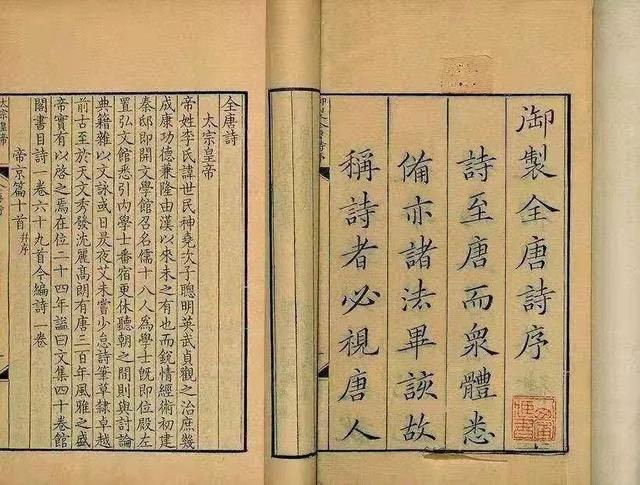 御製全唐詩序
詩至唐而衆體悉
備亦諸法畢該故
稱詩者必視唐人
全唐詩
太宗皇帝
帝姓李氏諱世民神堯次子聰明英武貞觀之治庶幾
成康功德兼隆由漢以來未之有也而銳情經術初建
秦邸即開文學館召名儒十八人為學士旣即位殿左
置弘文館悉引內學士番宿更休聽朝之間則與討論
典籍雜以文詠或日昃夜艾未嘗少怠詩筆草隸卓越
前古至於天文秀發沈麗高朗有唐三百年風雅之盛
帝實有以啓之焉在位二十四年諡曰文集四十卷館
閣書目詩一卷六十九首今編詩一卷
帝京篇十首 幷序
太宗皇帝